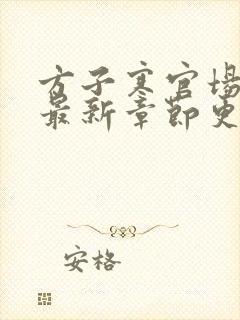 方子寒官场
最新章节更
安格